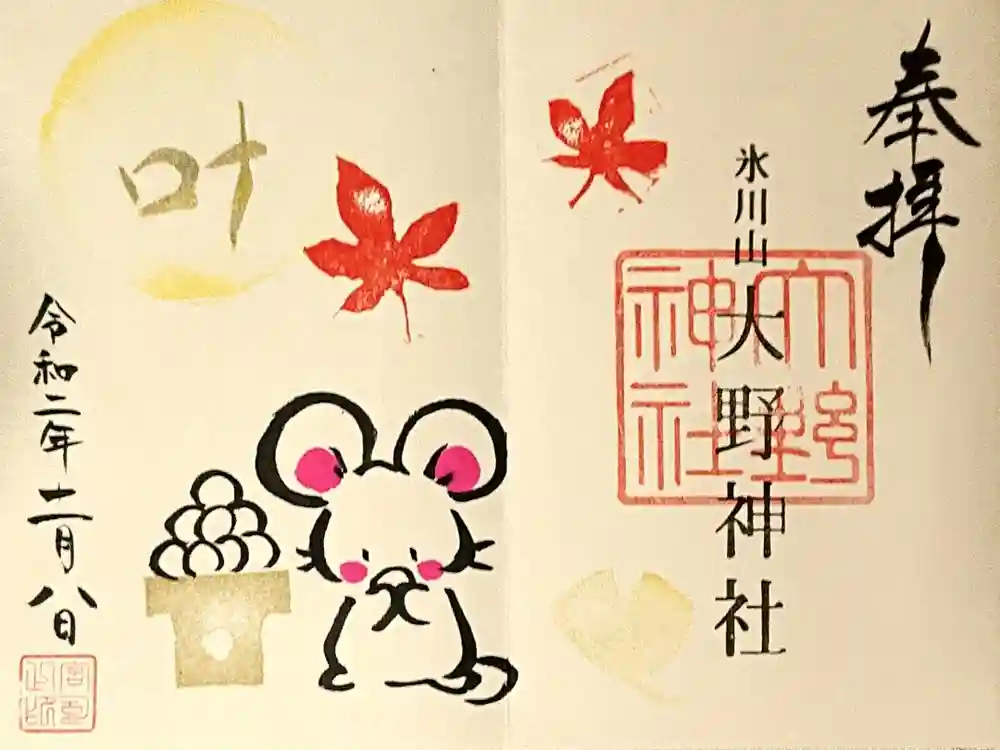 奉拝
氷川山
大野神社
大野
神社
叶
令和二年十一月八日
宮司
之印